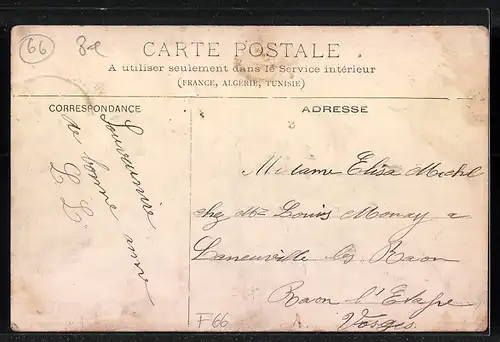 66
8e
CARTE POSTALE
A utiliser seulement dans le Service intérieur
(FRANCE, ALGERIE, TUNISIE)
CORRESPONDANCE
ADRESSE
Souvainire
de bonne anne
L L
Madame Elise Michel
chez Mr Louis Monay a
Laneuville les Raon
Raon l'Etape
Vosges
F66